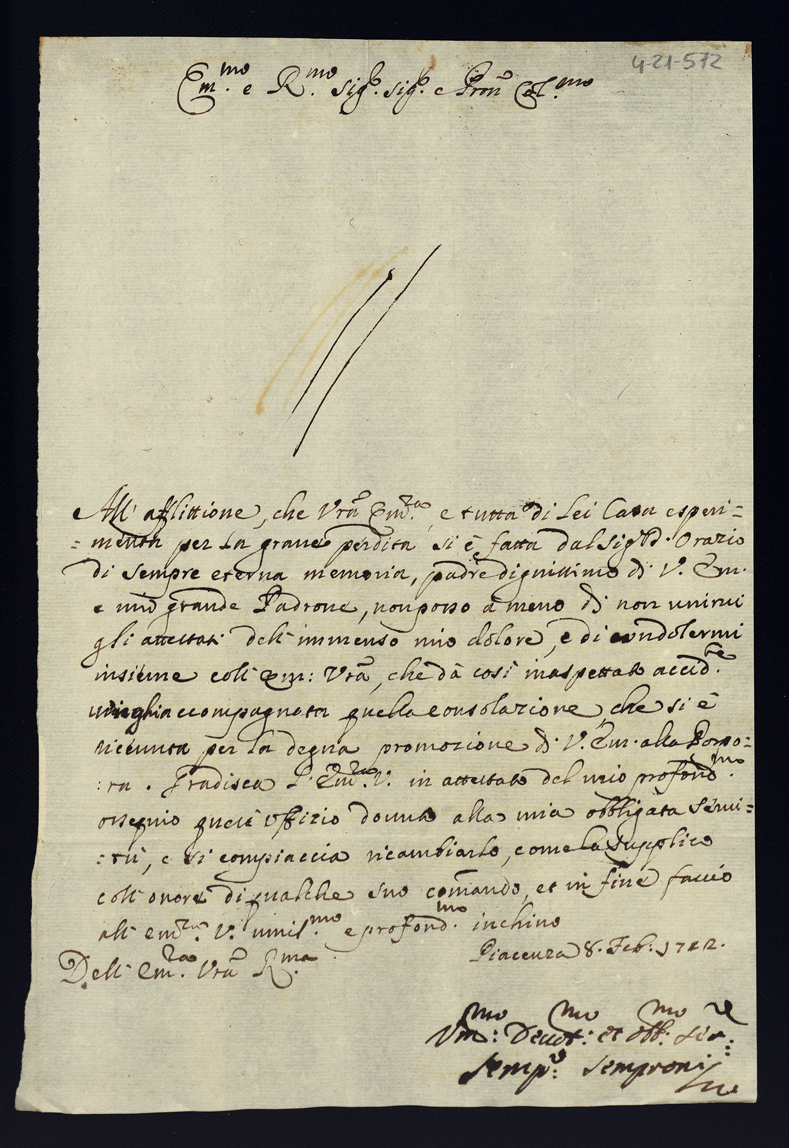 4-21-572
Em.mo e R.mo Sig.r Sig.r e Pron Col.mo
All' afflittione, che Vra Em.za, e tutta di Lei Casa esperi=
=menta per la grave perdita si è fatta dal Sig.r D. Orazio
di sempre eterna memoria, padre dignissimo di V. Em.
e mio grande Padrone, non posso à meno di non unirvi
gli attestati dell' immenso mio dolore, e di condolermi
insieme coll' Em: Vra, che dà così inaspettato accid.te
accompagnata quella consolazione, che si è
ricevuta per la degna promozione di V. Em. alla Porpo=
:ra. Gradisca l' Em.za V. in attestato del mio profond.mo
ossequio quest' uffizio dovuto alla mia obbligata servi=
:tù, e si compiaccia ricambiarlo, come la supplico
coll' onore di qualche suo comando, et in fine faccio
all' Em.za V. umil.mo e profond.mo inchino
Piacenza 8. Feb. 1712.
Dell' Em.za Vra R.ma
Um:mo Devot:mo et obb:mo ser:re
Semp.o Semproni